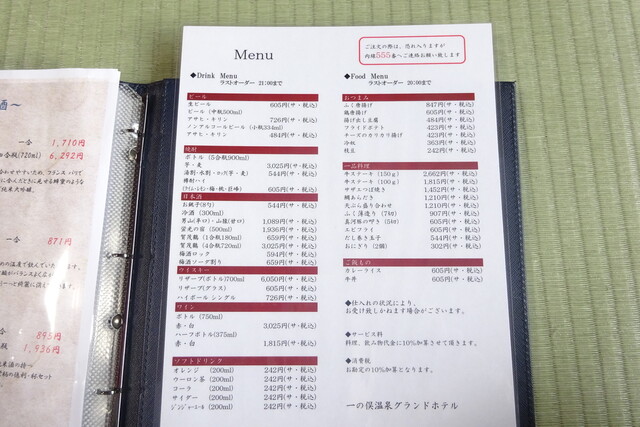 Menu
ご注文の際は、恐れ入りますが
内線555番へご連絡お願い致します
◆Drink Menu
ラストオーダー 21:00まで
ビール
生ビール 605円(サ・税込)
ビール (中瓶500ml)
アサヒ・キリン 726円(サ・税込)
ノンアルコールビール (小瓶334ml)
アサヒ・キリン 484円(サ・税込)
焼酎
ボトル (5合瓶900ml)
芋・麦 3,025円(サ・税込)
544円(サ・税込)
樽酎ハイ
605円(サ・税込)
日本酒
お銚子(8勺) 544円(サ・税込)
冷酒 (300ml)
男山(辛口)・山猿(甘口) 1,089円(サ・税込)
蛍光の宿 (500ml) 1,936円(サ・税込)
賀茂鶴 (1合瓶180ml) 659円(サ・税込)
賀茂鶴 (4合瓶720ml) 3,025円(サ・税込)
梅酒ロック 594円(サ・税込)
梅酒ソーダ割り 659円(サ・税込)
ウイスキー
リザーブ(ボトル700ml) 6,050円(サ・税込)
リザーブ(グラス) 605円(サ・税込)
ハイボール シングル 726円(サ・税込)
ワイン
ボトル (750ml)
赤・白 3,025円(サ・税込)
ハーフボトル(375ml)
赤・白 1,815円(サ・税込)
ソフトドリンク
オレンジ (200ml) 242円(サ・税込)
ウーロン茶 (200ml) 242円(サ・税込)
コーラ (200ml) 242円(サ・税込)
サイダー (200ml) 242円(サ・税込)
ジンジャーエール(200ml) 242円(サ・税込)
◆Food Menu
ラストオーダー 20:00まで
おつまみ
ふく唐揚げ 847円(サ・税込)
鶏唐揚げ 605円(サ・税込)
揚げ出し豆腐 484円(サ・税込)
フライドポテト 423円(サ・税込)
チーズのカリカリ揚げ 423円(サ・税込)
冷奴 363円(サ・税込)
枝豆 242円(サ・税込)
一品料理
牛ステーキ (150g) 2,662円(サ・税込)
牛ステーキ (100g) 1,815円(サ・税込)
サザエつぼ焼き 1,452円(サ・税込)
鯛あらだき 1,210円(サ・税込)
天ぷら盛り合わせ 1,210円(サ・税込)
ふく薄造り (7切) 907円(サ・税込)
真河豚のザ (5切) 605円(サ・税込)
エビフライ 605円(サ・税込)
だし巻き玉子 544円(サ・税込)
おにぎり (2個) 302円(サ・税込)
ご飯もの
カレーライス 605円(サ・税込)
牛丼 605円(サ・税込)
◆仕入れの状況により、
お受け致しかねます場合がございます。
◆サービス料
料理、飲み物代金に10%加算させて頂きます。
◆消費税
お勘定の10%加算となります。
一の俣温泉グランドホテル
酒～
一合 1,710円
合瓶(720ml) 6,292円
一合 871円
一合 895円
1,936円